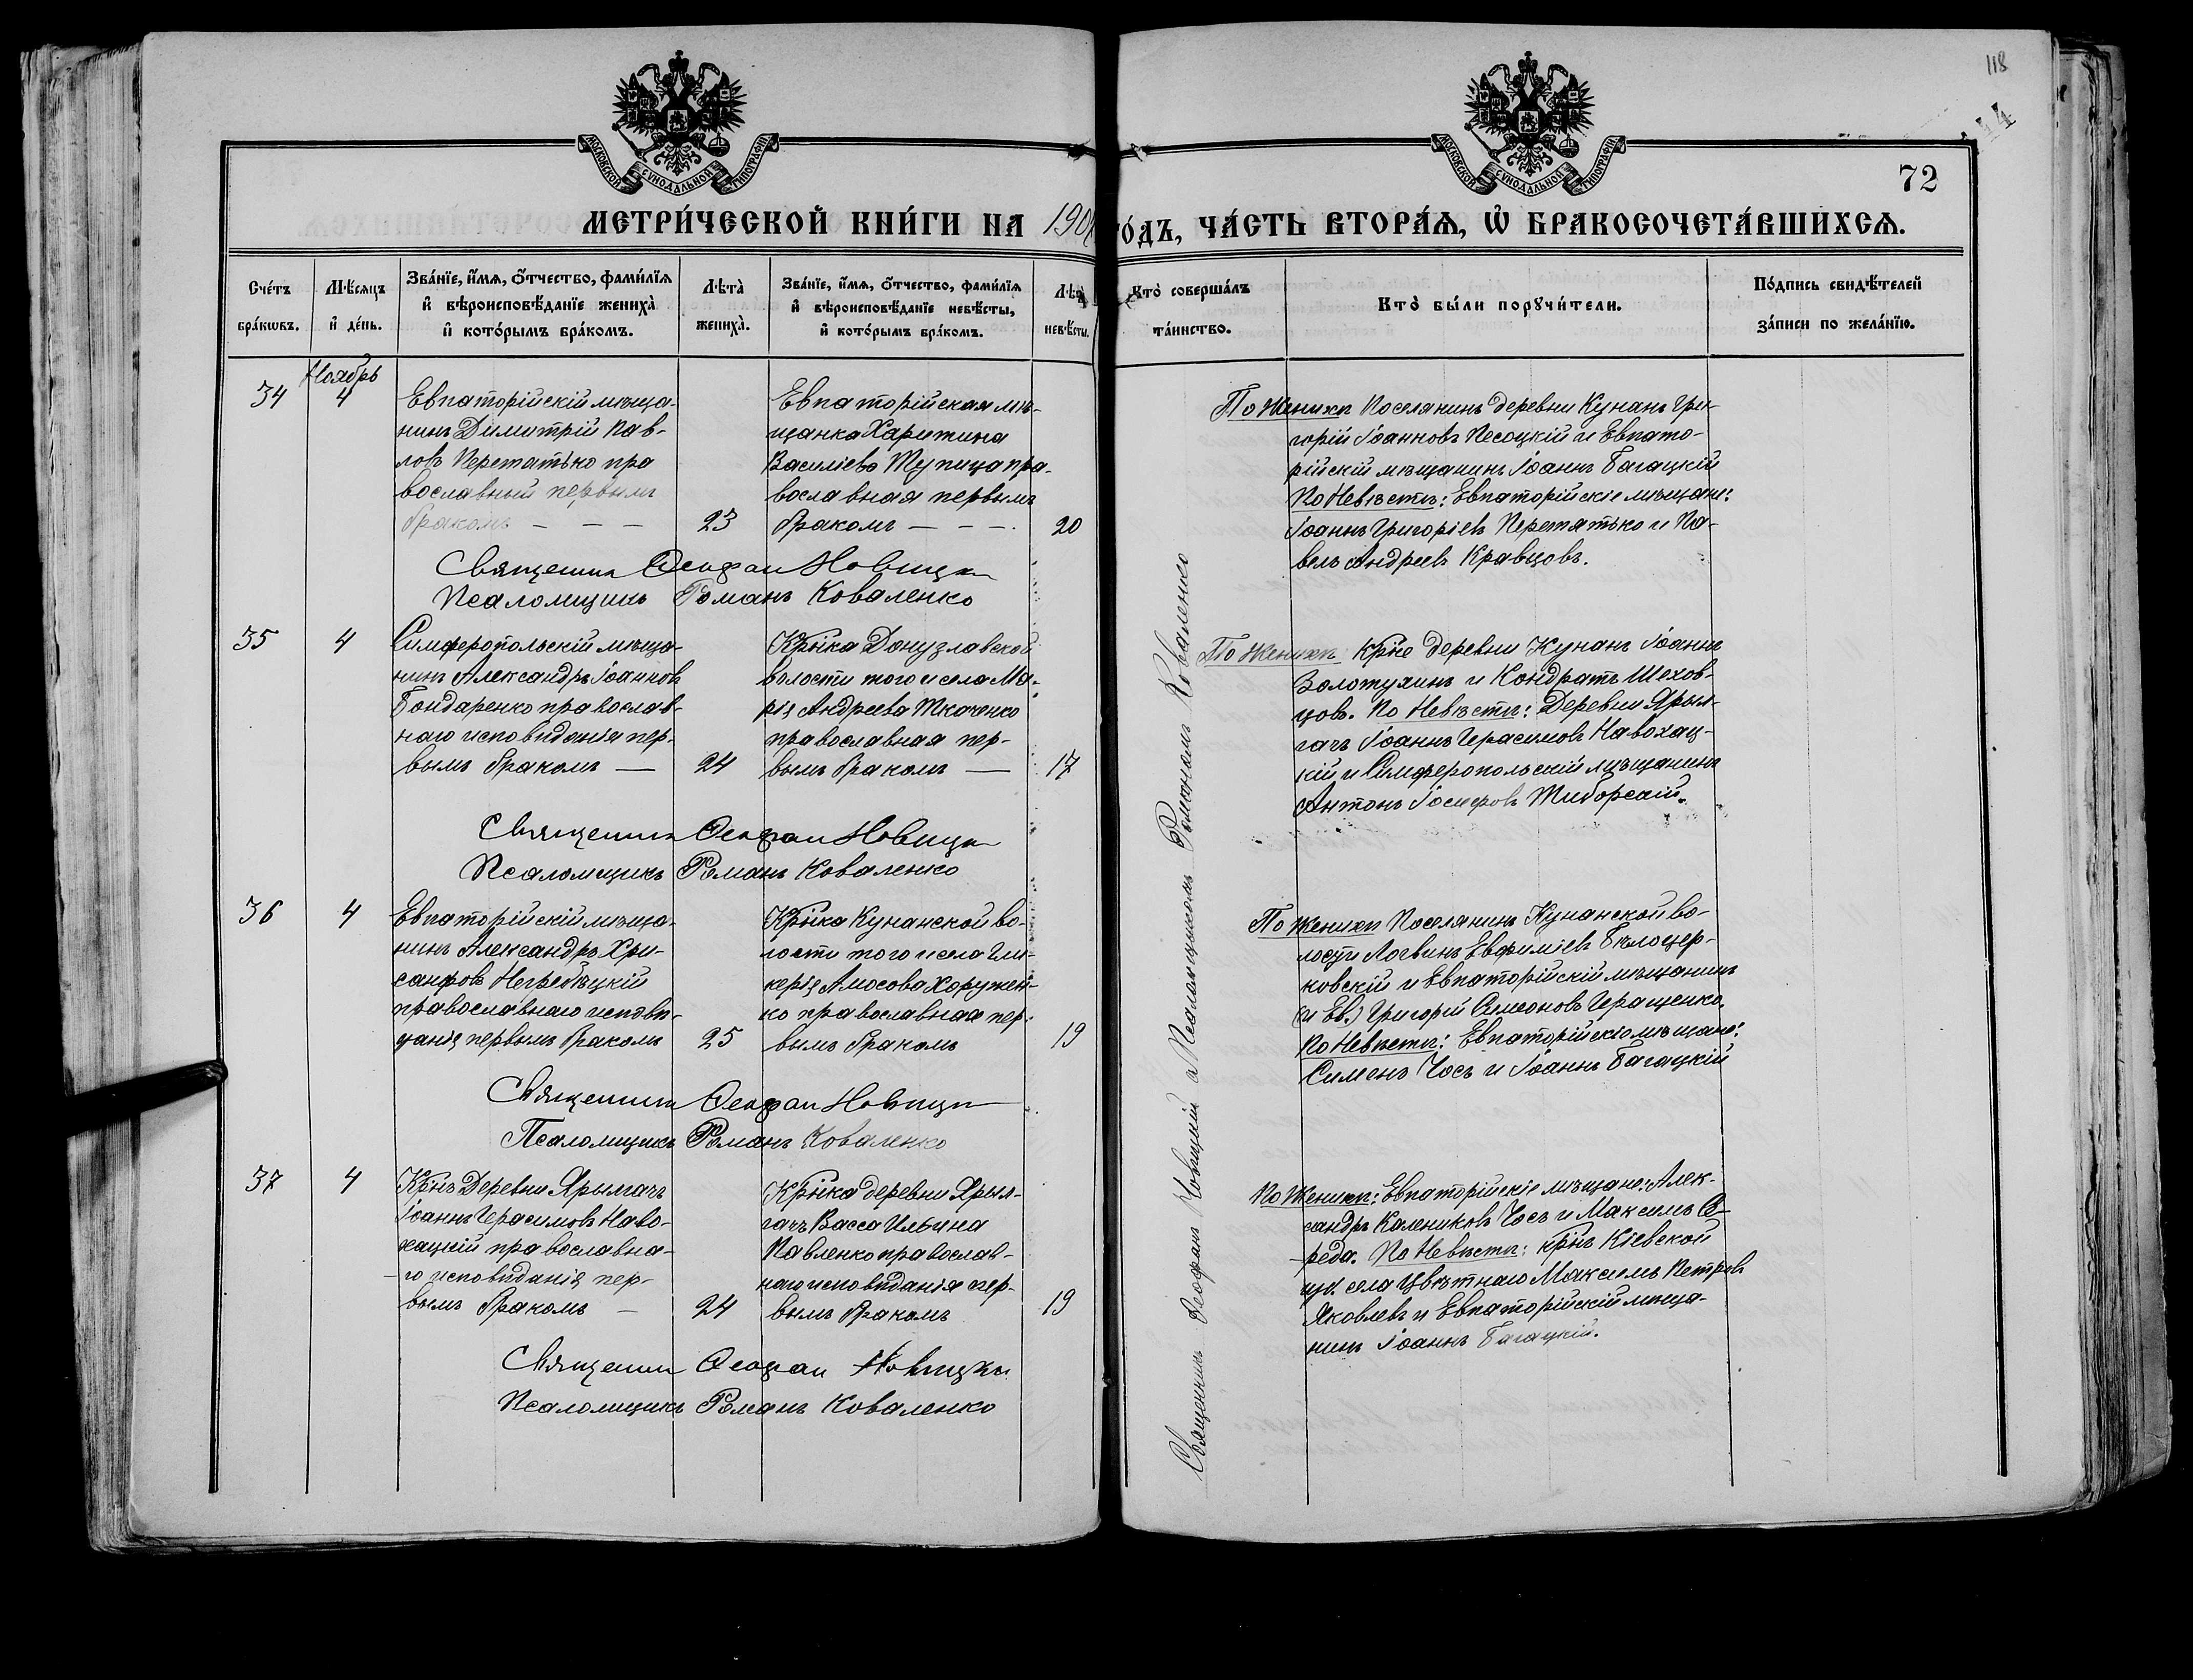 118
14
72
МОСКОВСКОЙ СѴНОДАЛЬНОЙ ТИПОГРАФІИ
МОСКОВСКОЙ СѴНОДАЛЬНОЙ ТИПОГРАФІИ
МЕТРИ́ЧЕСКОЙ КНИ́ГИ НА 190
ГО́ДЪ, ЧА́СТЬ ВТОРА́Ѧ, Ѽ БРАКОСОЧЕТА́ВШИХСѦ.
Сче́тъ бра́кѡвъ.
Мѣ́сяцъ и҆ де́нь.
Зва́нїе, и҆́мѧ, ѻ҆́тчество, фами́лїѧ и҆ вѣроисповѣ́данїе жениха̀ и҆ кото́рымъ бра́комъ.
Лѣта̀ жениха̀.
Зва́нїе, и҆́мѧ, ѻ҆́тчество, фами́лїѧ и҆ вѣроисповѣ́данїе невѣ́сты, и҆ кото́рымъ бра́комъ.
Лѣта̀ невѣ́сты.
Кто̀ соверша́лъ та́инство.
Кто̀ бы́ли порꙋчи́тели.
По́дпись свидѣ́телей за́писи по жела́нїю.
Ноябрь
34
4
Евпаторійскій мѣща-
нинъ Димитрій Пав-
ловъ Перетятько пра
вославный первымъ
бракомъ — — —
23
Евпаторійская мѣ-
щанка Харитина
Василіева Тупица пра-
вославная первымъ
бракомъ — — —.
20
По Женихѣ Поселянинъ деревни Кунанъ Гри-
горій Іоанновъ Песоцкій и Евпато-
рійскій мѣщанинъ Іоаннъ Багацкій
По Невѣстѣ: Евпаторійскіе мѣщане:
Іоаннъ Григоріевъ Перетятько и Па-
велъ Андреевъ Кравцовъ.
Священник Ѳеофан Новицки
Псаломщикъ Романъ Коваленко
35
4
Симферопольскій мѣща-
нинъ Александръ Іоанновъ
Бондаренко православ-
наго исповѣданія пер-
вымъ бракомъ —
24
Крнка Донузлавской
волости того и села Ма-
рія Андреева Ткаченко
православная пер-
вымъ бракомъ —
17
По Женихѣ Крне деревни Кунанъ Іоаннъ
Золотухинъ и Кондратъ Шехов-
цовъ. По Невѣстѣ: Деревни Ярыл-
гачъ Іоаннъ Герасимовъ Навохац-
кій и Симферопольскій мѣщанинъ
Антонъ Іосифовъ Тиборскій.
Священник Ѳеофан Новицки
Псаломщикъ Романъ Коваленко
36
4
Евпаторійскій мѣща-
нинъ Александръ Хри-
санфовъ Негребѣцкій
православнаго исповѣ-
данія первымъ бракомъ
25
Крнка Кунанской во-
лости того и села Гли-
керія Амосова Хоружен-
ко православная пер-
вымъ бракомъ
19
По Женихѣ Поселянинъ Кунанской во-
лости Логвинъ Евфиміевъ Бѣлоцер-
ковскій и Евпаторійскій мѣщанинъ
(и Ев.) Григорій Симеоновъ Геращенко.
По Невѣстѣ: Евпаторійскіе мѣщане:
Симеонъ Чосъ и Іоаннъ Багацкій
Священник Ѳеофан Новицки
Псаломщикъ Романъ Коваленко
37
4
Крнъ Деревни Ярылгачъ
Іоаннъ Герасимовъ Наво-
хацкій православна-
го исповѣданія пер-
вымъ бракомъ —
24
Крнка деревни Ярыл-
гачъ Васса Ильина
Павленко православ-
наго исповѣданія пер-
вымъ бракомъ
19
По Женихѣ: Евпаторійскіе мѣщане: Алек-
сандръ Калениковъ Чосъ и Максимъ Се-
реда. По Невѣстѣ: крнъ Кіевской
губ. села Цвѣтнаго Максимъ Петровъ
Яковлевъ и Евпаторійскій мѣща-
нинъ Іоаннъ Багацкій.
Священник Ѳеофан Новицки
Псаломщикъ Романъ Коваленко
Священникъ Ѳеофанъ Новицкій съ Псаломщикомъ Романомъ Коваленко